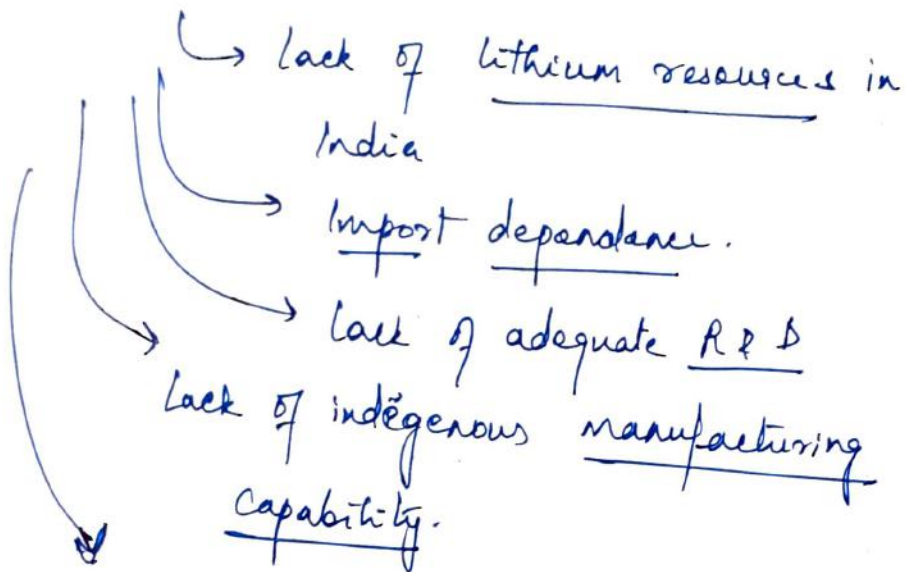 Lack of lithium resources in
India
Import dependance.
Lack of adequate R & D
Lack of indegenous manufacturing
capability.